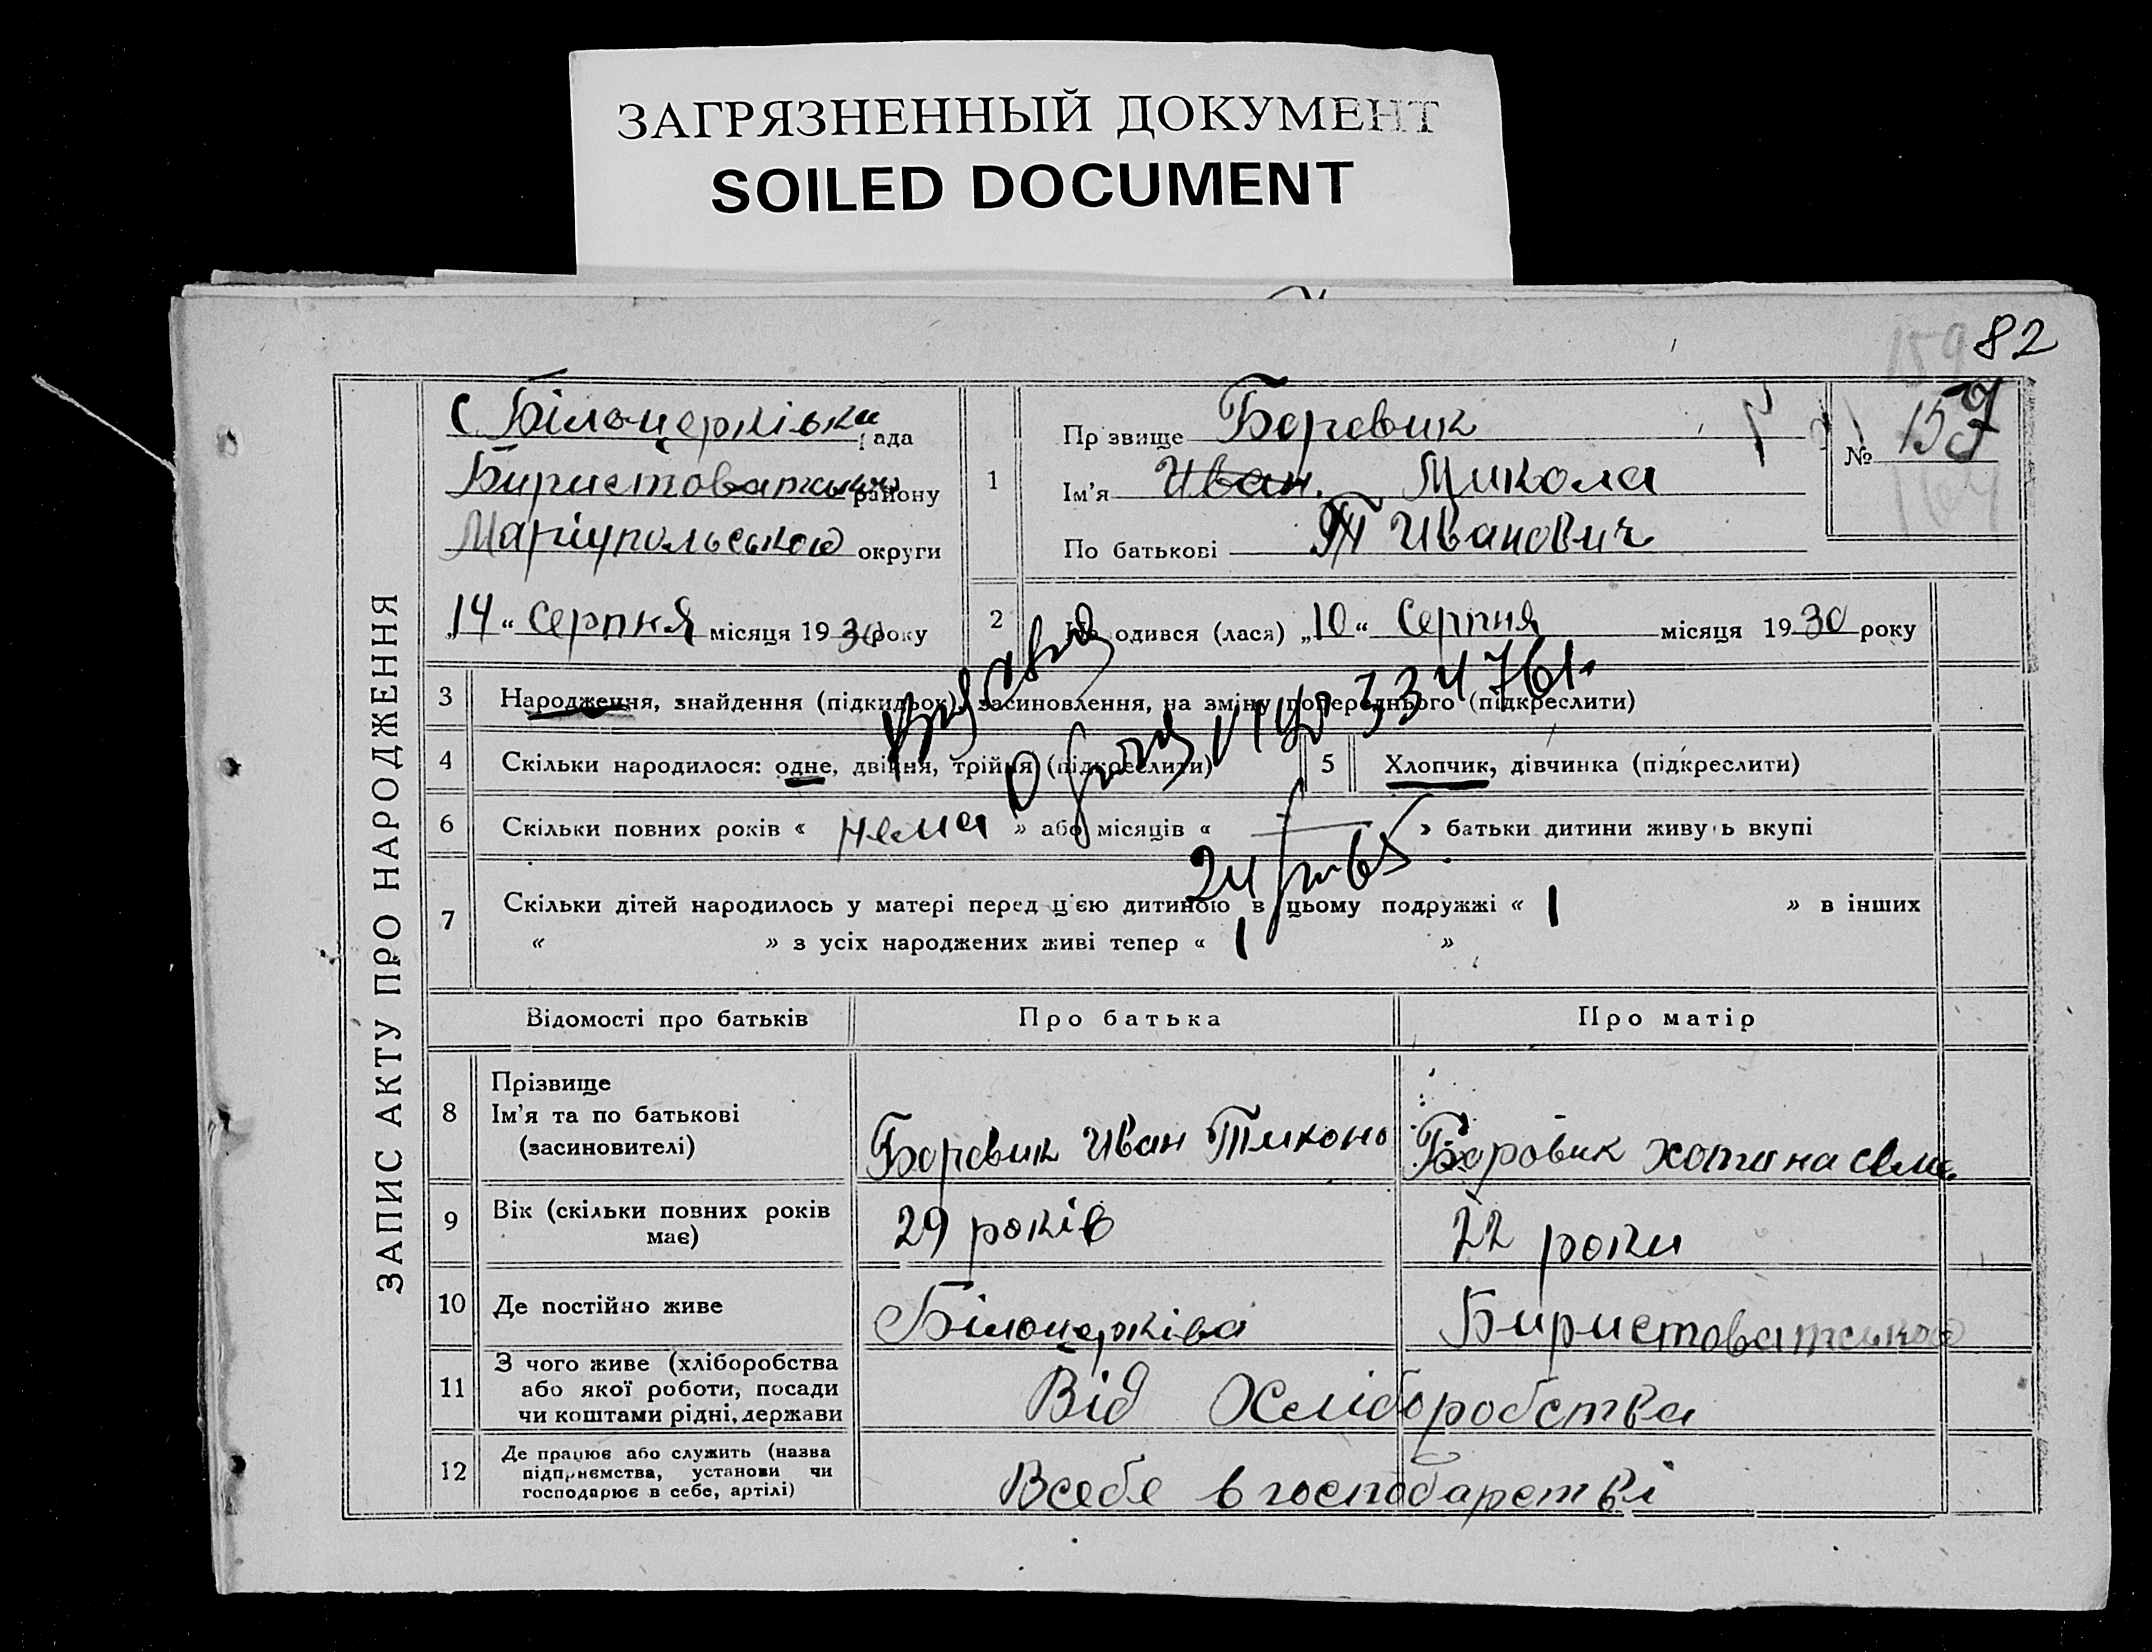 ЗАГРЯЗНЕННЫЙ ДОКУМЕНТ
SOILED DOCUMENT
159 82
ЗАПИС АКТУ ПРО НАРОДЖЕННЯ
с Білоцерківки рада
району
Маріупольської округи
„14“ серпня місяця 1930 року
1
Прізвище Боровик
Ім'я Иван. Микола
По батькові Иванович
№ 157
2 Народився (лася) „10“ Серпня місяця 1930 року
3 Народження, знайдення (підкидьок), засиновлення, на зміну попереднього (підкреслити)
4 Скільки народилося: одне, двійня, трійня (підкреслити)
5 Хлопчик, дівчинка (підкреслити)
6 Скільки повних років « нема » або місяців « — » батьки дитини живуть вкупі
7 Скільки дітей народилось у матері перед ц'єю дитиною в цьому подружжі « 1 » в інших
« » з усіх народжених живі тепер « 1 »
Відомості про батьків Про батька Про матір
8 Прізвище
Ім'я та по батькові
(засиновителі)
Боровик Иван Тихоно
Боровик
9 Вік (скільки повних років
має)
29 років
22 роки
10 Де постійно живе
Білоцерківа
11 З чого живе (хліборобства
або якої роботи, посади
чи коштами рідні, держави
Від Хліборобства
12 Де працює або служить (назва
підприємства, установи чи
господарює в себе, артілі)
Всебе в господарстві